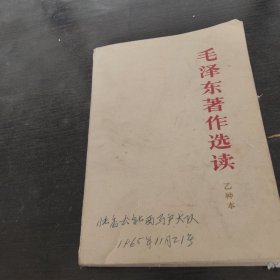 毛泽东著作选读
乙种本
大队
1965年11月21号